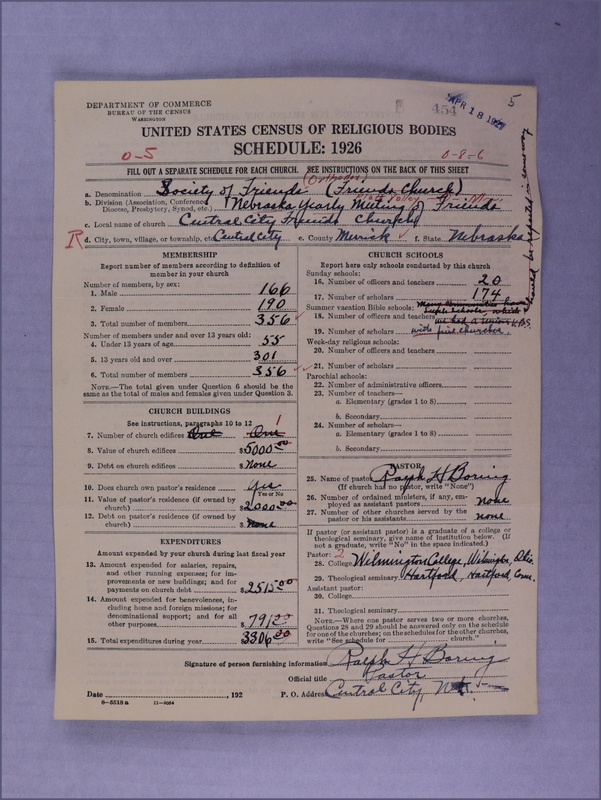 DEPARTMENT OF COMMERCE
BUREAU OF THE CENSUS
WASHINGTON
454
APR 18 192
5
UNITED STATES CENSUS OF RELIGIOUS BODIES
SCHEDULE: 1926
0-5
0-8-6
FILL OUT A SEPARATE SCHEDULE FOR EACH CHURCH. SEE INSTRUCTIONS ON THE BACK OF THIS SHEET
(Orthodox)
a. Denomination Society of Friends (Friends Church)
b. Division (Association, Conference, Diocese, Presbytery, Synod, etc.) Nebraska Yearly Meeting of Friends
c. Local name of church Central City Friends Church
R d. City, town, village, or township, etc. Central City e. County Merrick f. State Nebraska
MEMBERSHIP
Report number of members according to definition of
member in your church
Number of members, by sex:
1. Male 166
2. Female 190
3. Total number of members 356
Number of members under and over 13 years old:
4. Under 13 years of age 55
5. 13 years old and over 301
6. Total number of members 356
NOTE.—The total given under Question 6 should be the
same as the total of males and females given under Question 3.
CHURCH BUILDINGS
See instructions, paragraphs 10 to 12
7. Number of church edifices One One 1
8. Value of church edifices $5000.00
9. Debt on church edifices $None
10. Does church own pastor's residence? Yes
Yes or No
11. Value of pastor's residence (if owned by
church) $2000.00
12. Debt on pastor's residence (if owned by
church) $None
EXPENDITURES
Amount expended by your church during last fiscal year
13. Amount expended for salaries, repairs,
and other running expenses; for im-
provements or new buildings; and for
payments on church debt $2515.00
14. Amount expended for benevolences, in-
cluding home and foreign missions; for
denominational support; and for all
other purposes $791.00
15. Total expenditures during year $3306.00
CHURCH SCHOOLS
Report here only schools conducted by this church
Sunday schools:
16. Number of officers and teachers 20
17. Number of scholars 174
Summer vacation Bible schools:
18. Number of officers and teachers
19. Number of scholars with five churches.
Week-day religious schools:
20. Number of officers and teachers
21. Number of scholars
Parochial schools:
22. Number of administrative officers
23. Number of teachers—
a. Elementary (grades 1 to 8)
b. Secondary
24. Number of scholars—
a. Elementary (grades 1 to 8)
b. Secondary
should be reported in some way
PASTOR
25. Name of pastor Ralph H Boring
(If church has no pastor, write "None")
26. Number of ordained ministers, if any, em-
ployed as assistant pastors none
27. Number of other churches served by the
pastor or his assistants none
If pastor (or assistant pastor) is a graduate of a college or
theological seminary, give name of institution below. (If
not a graduate, write "No" in the space indicated.)
Pastor: 2
28. College Wilmington College, Wilmington, Ohio.
29. Theological seminary Hartford, Hartford, Conn.
Assistant pastor:
30. College
31. Theological seminary
NOTE.—Where one pastor serves two or more churches,
Questions 28 and 29 should be answered only on the schedule
for one of the churches; on the schedules for the other churches,
write "See schedule for church."
Signature of person furnishing information Ralph H Boring
Official title Pastor
Date , 192 P. O. Address Central City, Neb.
8—5518a 11—9054